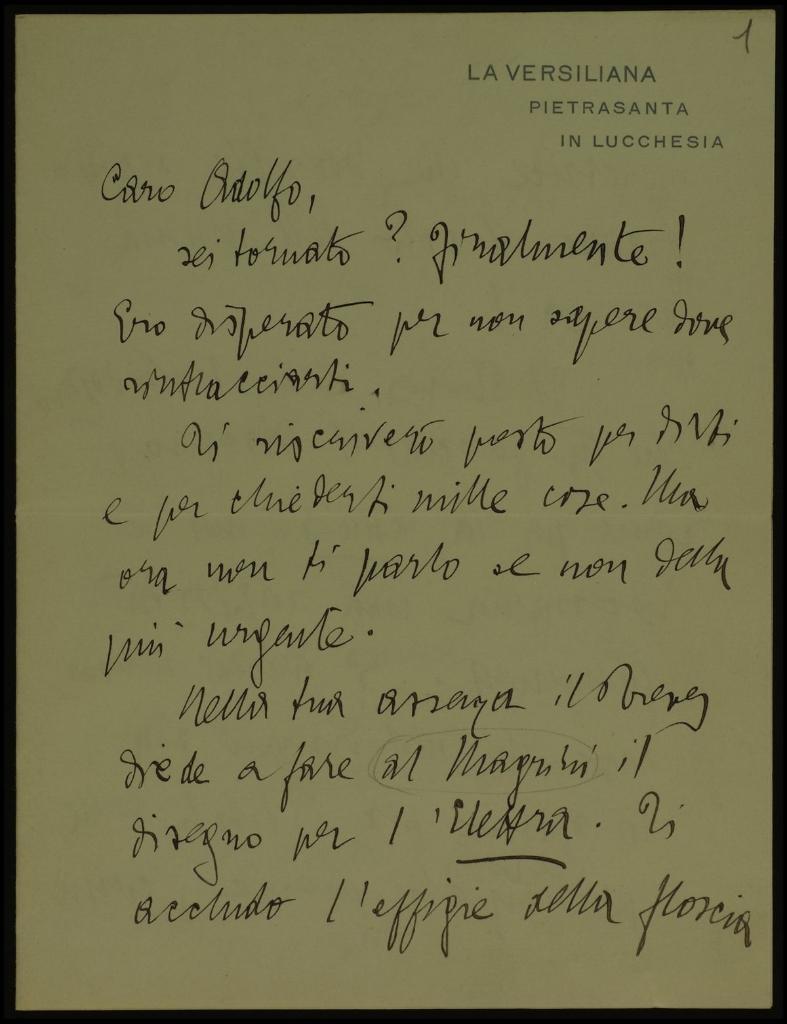 1
LA VERSILIANA
PIETRASANTA
IN LUCCHESIA
Caro Adolfo,
sei tornato? Finalmente!
Ero disperato per non sapere dove
rintracciarti.
Ti riscriverò presto per dirti
e per chiederti mille cose. Ma
ora non ti parlo se non della
più urgente.
Nella tua assenza il Treves
diede a fare al Magrini il
disegno per l'Elettra. Ti
accludo l'effigie della floscia